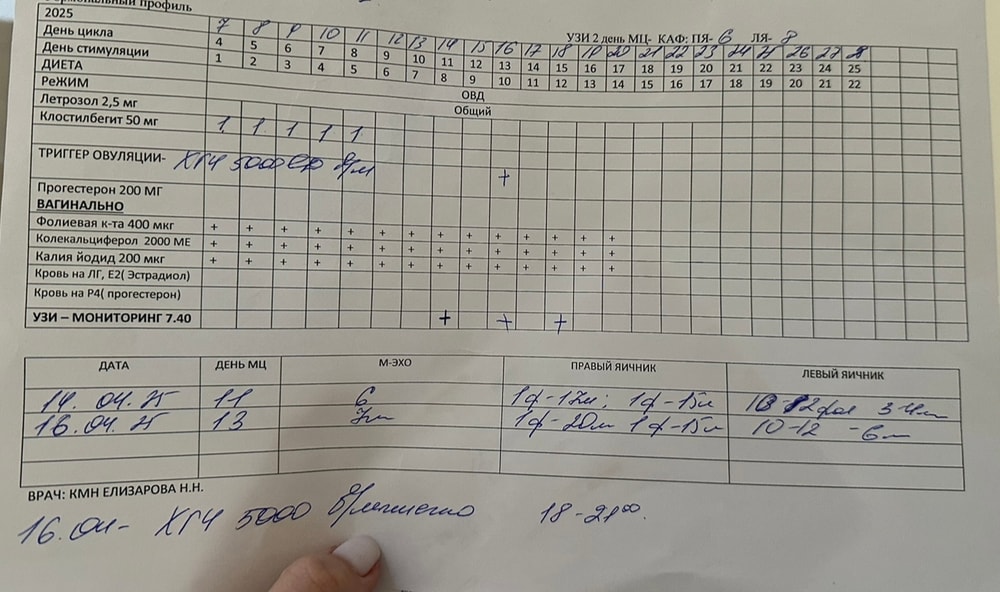 2025
День цикла 7 8 9 10 11 12 13 14 15 16 17 18 19 20 21 22 23 24 25 26 27 28
УЗИ 2 день МЦ- КАФ: ПЯ- 6 ЛЯ- 8
День стимуляции 4 5 6 7 8 9 10 11 12 13 14 15 16 17 18 19 20 21 22 23 24 25
ДИЕТА 1 2 3 4 5 6 7 8 9 10 11 12 13 14 15 16 17 18 19 20 21 22
РеЖИМ ОВД
Летрозол 2,5 мг Общий
Клостилбегит 50 мг 1 1 1 1 1
ТРИГГЕР ОВУЛЯЦИИ- ХГЧ 5000 ЕД в/м +
Прогестерон 200 МГ
ВАГИНАЛЬНО
Фолиевая к-та 400 мкг + + + + + + + + + + + + + +
Колекальциферол 2000 МЕ + + + + + + + + + + + + + +
Калия йодид 200 мкг + + + + + + + + + + + + + +
Кровь на ЛГ, Е2( Эстрадиол)
Кровь на Р4( прогестерон)
УЗИ – МОНИТОРИНГ 7.40 + + +
ДАТА ДЕНЬ МЦ М-ЭХО ПРАВЫЙ ЯИЧНИК ЛЕВЫЙ ЯИЧНИК
14. 04. 25 11 6 1ф-17мм; 1ф-15мм
16.04. 25 13 7мм 1ф-20мм 1ф-15мм 10-12 -6мм
ВРАЧ: КМН ЕЛИЗАРОВА Н.Н.
16.04- ХГЧ 5000 в/мышечно 18-21⁰⁰.